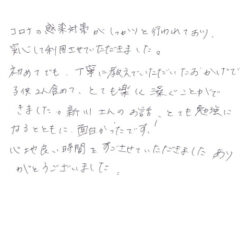 コロナの感染対策がしっかりと行われており、
安心して利用させていただきました。
初めてでも、丁寧に教えていただいたおかげで
子供2人含めて、とても楽しく漕ぐことがで
きました。新川さんのお話、とても勉強に
なるとともに、面白かったです!
心地良い時間をすごさせていただきました あり
がとうございました。